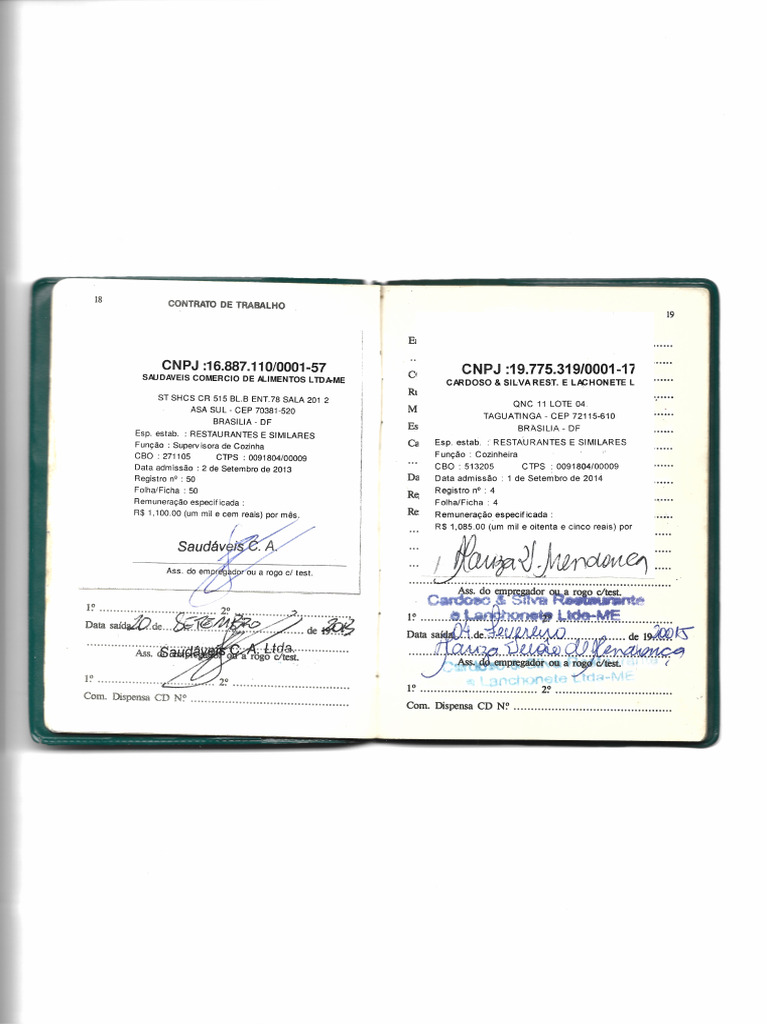 18
CONTRATO DE TRABALHO
CNPJ :16.887.110/0001-57
SAUDAVEIS COMERCIO DE ALIMENTOS LTDA-ME
ST SHCS CR 515 BL.B ENT.78 SALA 201 2
ASA SUL - CEP 70381-520
BRASILIA - DF
Esp. estab. : RESTAURANTES E SIMILARES
Função : Supervisora de Cozinha
CBO : 271105 CTPS : 0091804/00009
Data admissão : 2 de Setembro de 2013
Registro nº : 50
Folha/Ficha : 50
Remuneração especificada :
R$ 1,100.00 (um mil e cem reais) por mês.
Saudáveis C. A.
Ass. do empregador ou a rogo c/ test.
1º 2º
Data saída 20 de SETEMBRO de 2013
Saudáveis C. A. Ltda.
Ass. do empregador ou a rogo c/test.
1º 2º
Com. Dispensa CD N.º
19
CNPJ :19.775.319/0001-17
CARDOSO & SILVA REST. E LACHONETE L
QNC 11 LOTE 04
TAGUATINGA - CEP 72115-610
BRASILIA - DF
Esp. estab. : RESTAURANTES E SIMILARES
Função : Cozinheira
CBO : 513205 CTPS : 0091804/00009
Data admissão : 1 de Setembro de 2014
Registro nº : 4
Folha/Ficha : 4
Remuneração especificada :
R$ 1,085.00 (um mil e oitenta e cinco reais) por
Ass. do empregador ou a rogo c/test.
Cardoso & Silva Restaurante
e Lanchonete Ltda-ME
1º 2º
Data saída 04 de Fevereiro de 19 20015
Ass. do empregador ou a rogo c/test.
e Lanchonete Ltda-ME
1º 2º
Com. Dispensa CD N.º